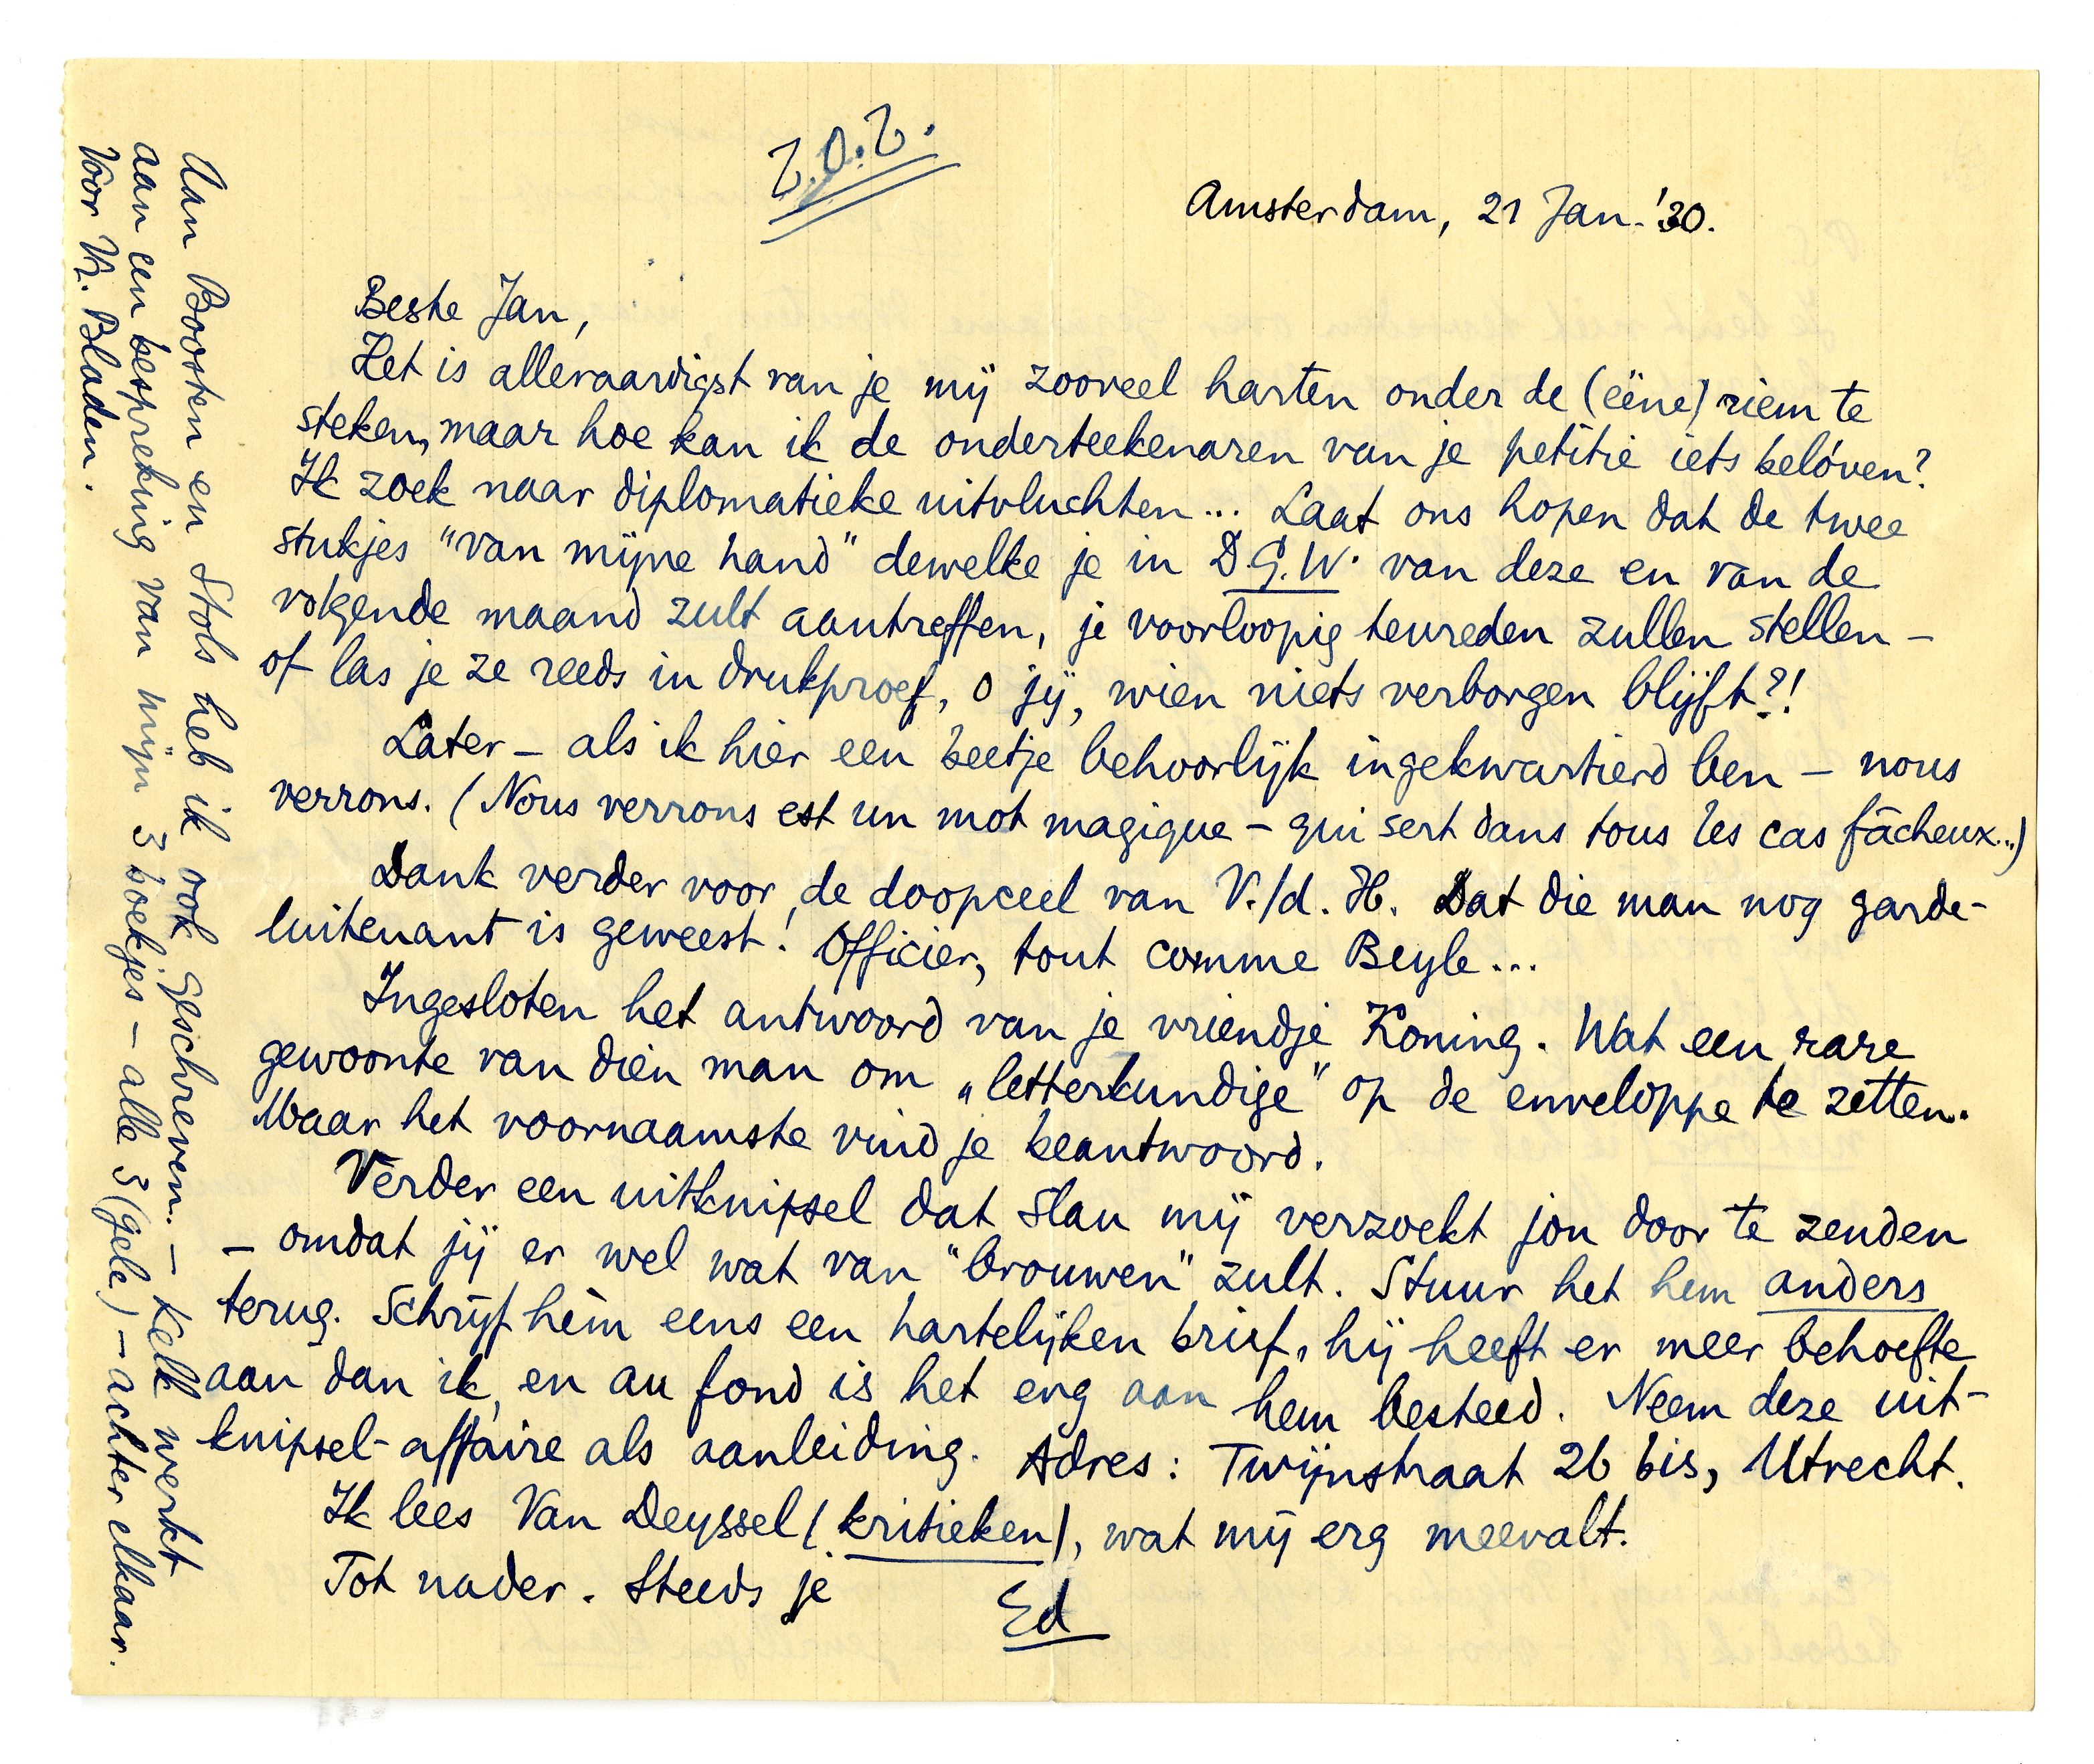 Z.O.Z.
Amsterdam, 21 Jan. '30.
Beste Jan,
Het is alleraardigst van je mij zooveel harten onder de (ééne) riem te
steken, maar hoe kan ik de onderteekenaren van je petitie iets belóven?
Ik zoek naar diplomatieke uitvluchten... Laat ons hopen dat de twee
stukjes "van mijne hand" dewelke je in D.G.W. van deze en van de
volgende maand zult aantreffen, je voorloopig tevreden zullen stellen –
of las je ze reeds in drukproef, o jij, wien niets verborgen blijft?!
Later – als ik hier een beetje behoorlijk ingekwartierd ben – nous
verrons. (Nous verrons est un mot magique – qui sert dans tous les cas fâcheux...)
Dank verder voor de doopceel van V./d. H. Dat die man nog garde-
luitenant is geweest! Officier, tout comme Beyle...
Ingesloten het antwoord van je vriendje Koning. Wat een rare
gewoonte van dien man om „letterkundige" op de enveloppe te zetten.
Maar het voornaamste vind je beantwoord.
Verder een uitknipsel dat Slau mij verzoekt jou door te zenden
– omdat jij er wel wat van "brouwen" zult. Stuur het hem anders
terug. Schrijf hèm eens een hartelijken brief, hij heeft er meer behoefte
aan dan ik, en au fond is het erg aan hem besteed. Neem deze uit-
knipsel-affaire als aanleiding. Adres: Twijnstraat 26 bis, Utrecht.
Ik lees Van Deyssel (kritieken), wat mij erg meevalt.
Tot nader. Steeds je
Ed
Aan Boosten en Stols heb ik ook geschreven. – Kelk werkt
aan een bespreking van mijn 3 boekjes – alle 3 (gele) – achter elkaar.
Voor Vr. Bladen.